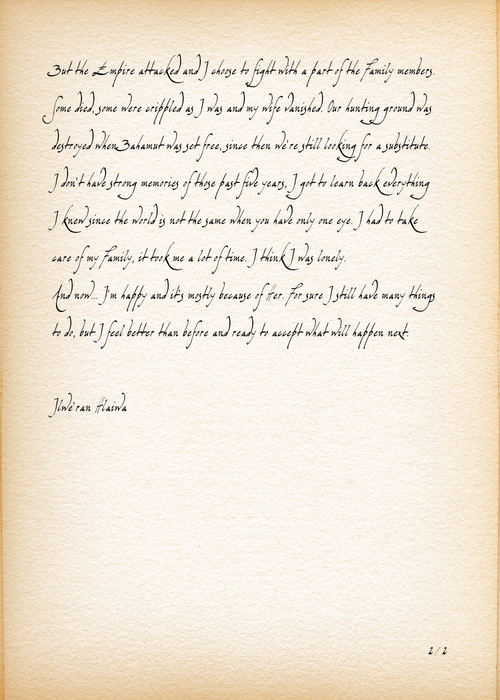 But the Empire attacked and I choose to fight with a part of the Family members.
Some died, some were crippled as I was and my wife vanished. Our hunting ground was
destroyed when Bahamut was set free, since then we're still looking for a substitute.
I don't have strong memories of those past five years, I got to learn back everything
I knew since the world is not the same when you have only one eye. I had to take
care of my Family, it took me a lot of time. I think I was lonely.
And now... I'm happy and it's mostly because of Her. For sure I still have many things
to do, but I feel better than before and ready to accept what will happen next.
Jlwe'ran Hlaiwa
2/2